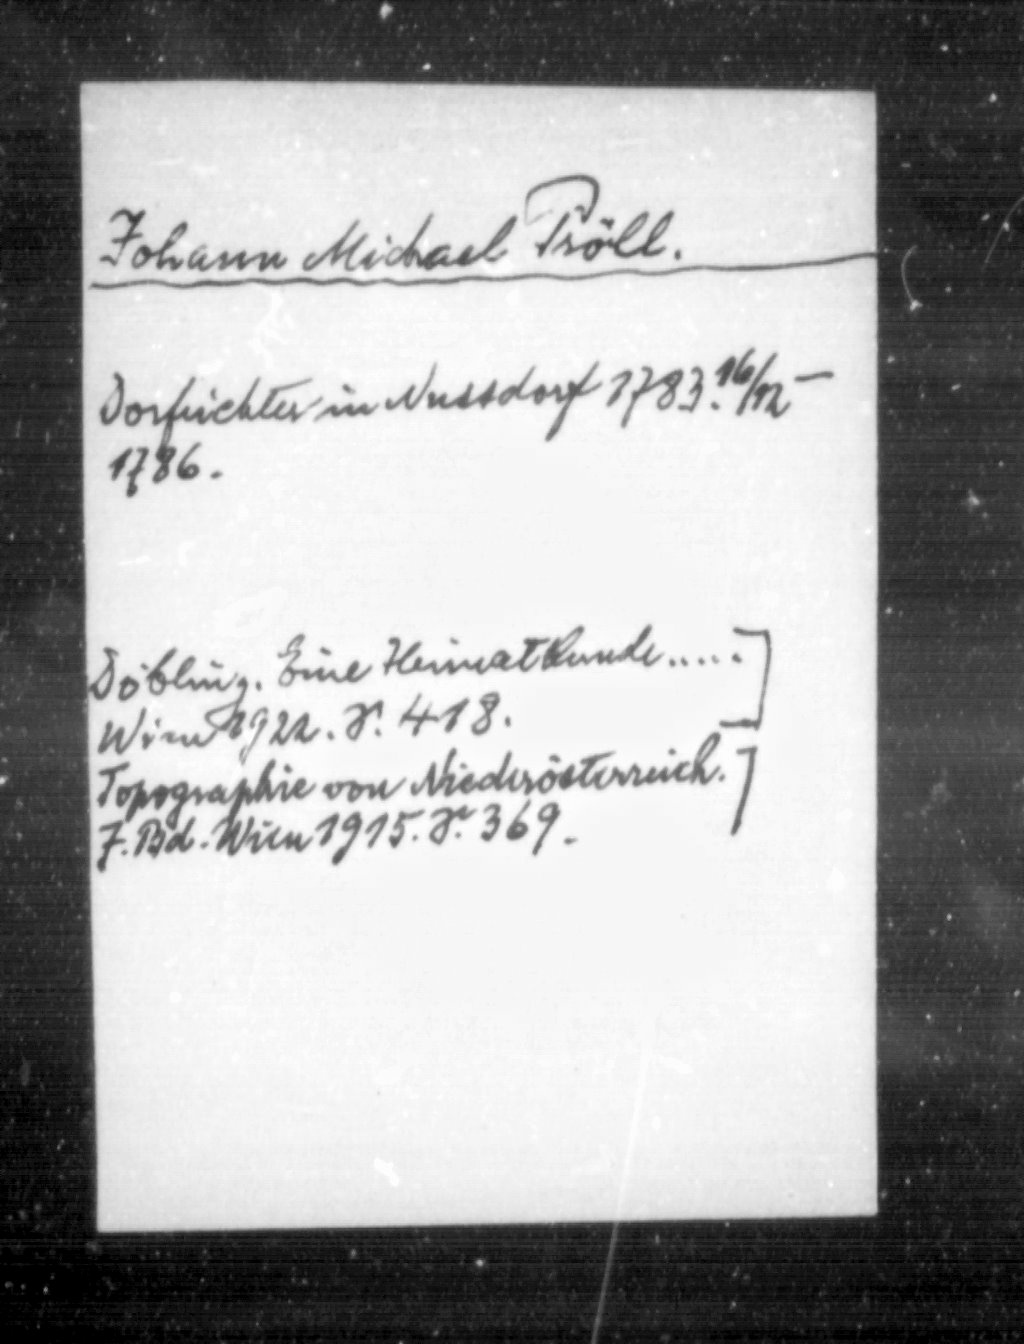 Johann Michael Pröll.
Dorfrichter in Nussdorf 1783.16/12 –
1786.
Döbling. Eine Heimatkunde.....]
Wien 1922. S. 418.
Topographie von Niederösterreich.]
7. Bd. Wien 1915. S. 369.